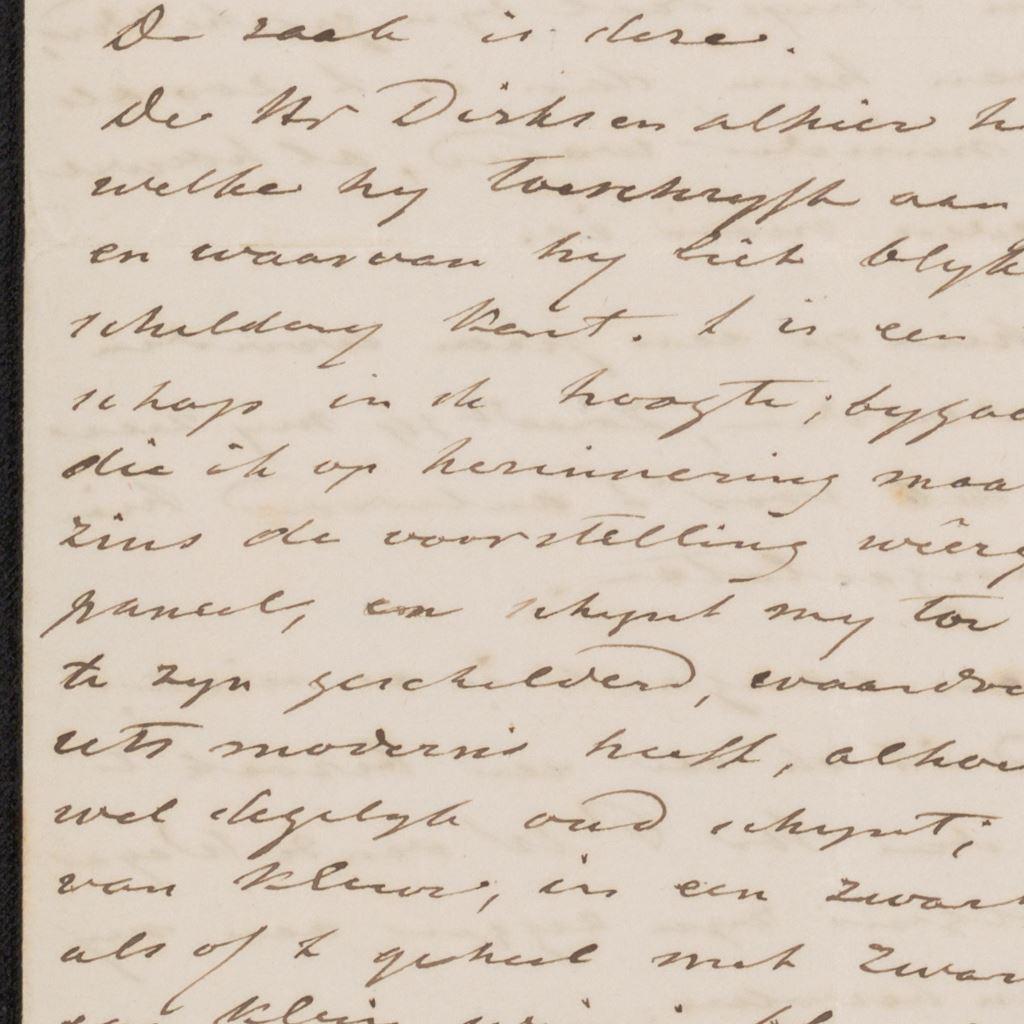 De zaak is deze.
De Hr Dirksen alhier h
welke hy toeschryft aan
en waarvan hy siet blyk
schildery kent. t is een
schaps in de hoogte; bygaa
die ik op herinnering maa
zins de voorstelling wêerg
paneel, en schynt my toe
te zyn geschilderd, waardo
iets moderns heeft, alhoe
wel degelyk oud schynt;
van kleur, is een zwar
als of t geheel met zwar
een klein